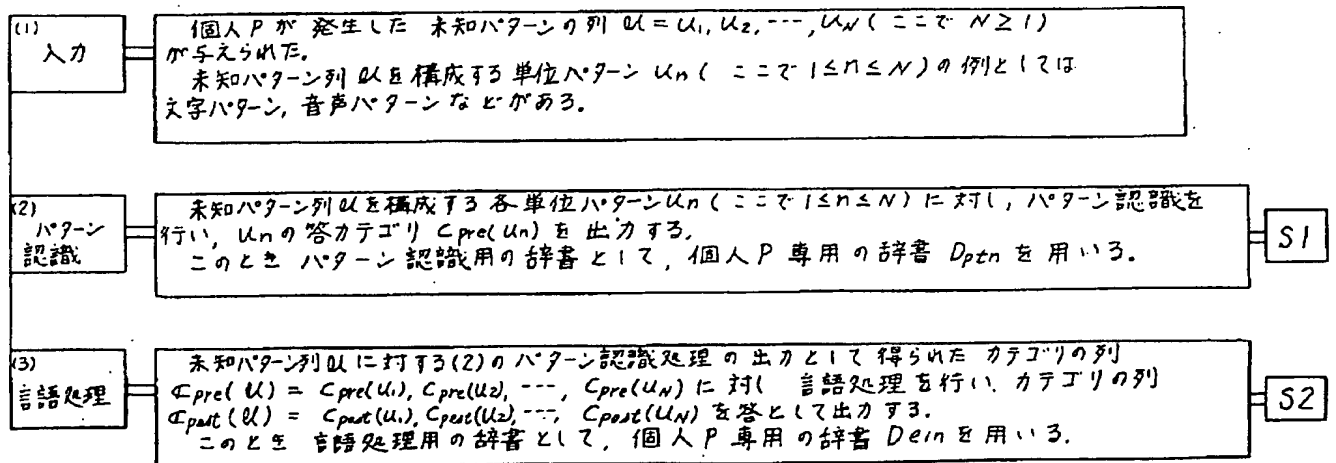 (1)
入力
個人Pが発生した未知パターンの列 𝓊 = u1, u2, ---, uN (ここで N≥1)
が与えられた。
未知パターン列𝓊を構成する単位パターン un (ここで 1≤n≤N) の例としては
文字パターン, 音声パターンなどがある。
(2)
パターン
認識
未知パターン列𝓊を構成する各単位パターンun (ここで 1≤n≤N) に対し, パターン認識を
行い, unの答カテゴリ Cpre(un) を出力する。
このとき パターン認識用の辞書として, 個人P専用の辞書 Dptn を用いる。
S1
(3)
言語処理
未知パターン列𝓊に対する(2)のパターン認識処理の出力として得られたカテゴリの列
ℂpre(𝓊) = Cpre(u1), Cpre(u2), ---, Cpre(uN) に対し 言語処理を行い, カテゴリの列
ℂpost(𝓊) = Cpost(u1), Cpost(u2), ---, Cpost(uN) を答として出力する。
このとき 言語処理用の辞書として, 個人P専用の辞書 Dein を用いる。
S2